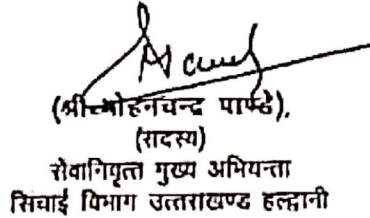 (श्री मोहनचन्द्र पाण्डे),
(सदस्य)
सेवानिवृत्त मुख्य अभियन्ता
सिंचाई विभाग उत्तराखण्ड हल्द्वानी